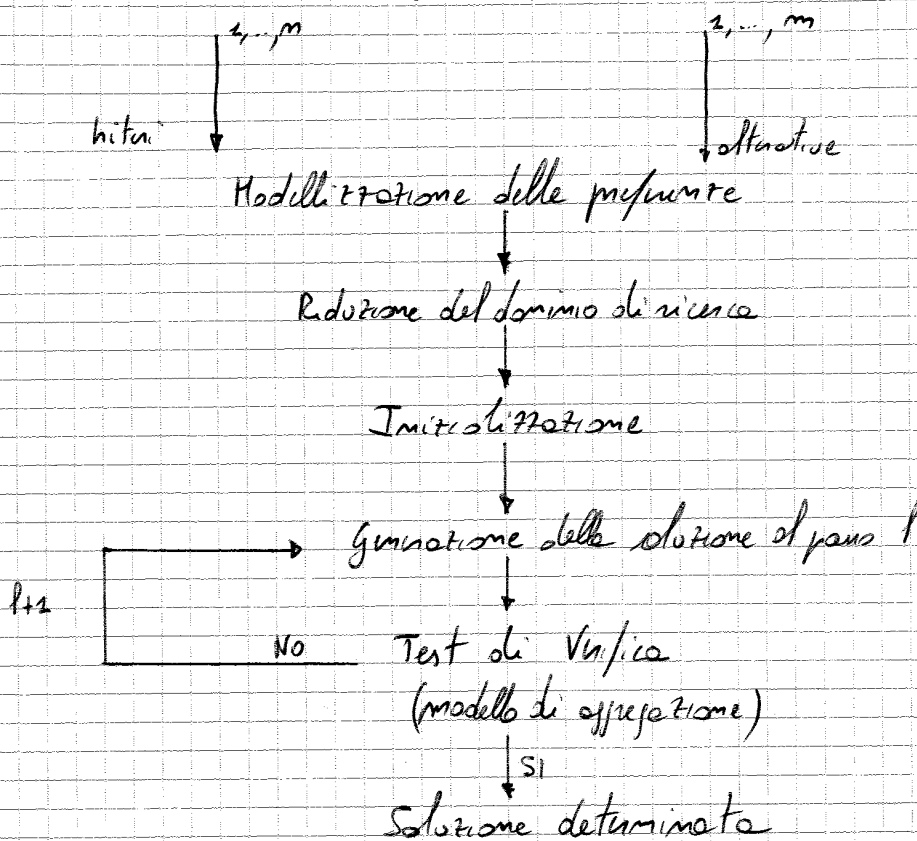 1,..,n
1, ..., m
criteri
alternative
Modellizzazione delle preferenze
Riduzione del dominio di ricerca
Inizializzazione
Generazione della soluzione al passo l
l+1
NO
Test di Verifica
(modello di aggregazione)
SI
Soluzione determinata